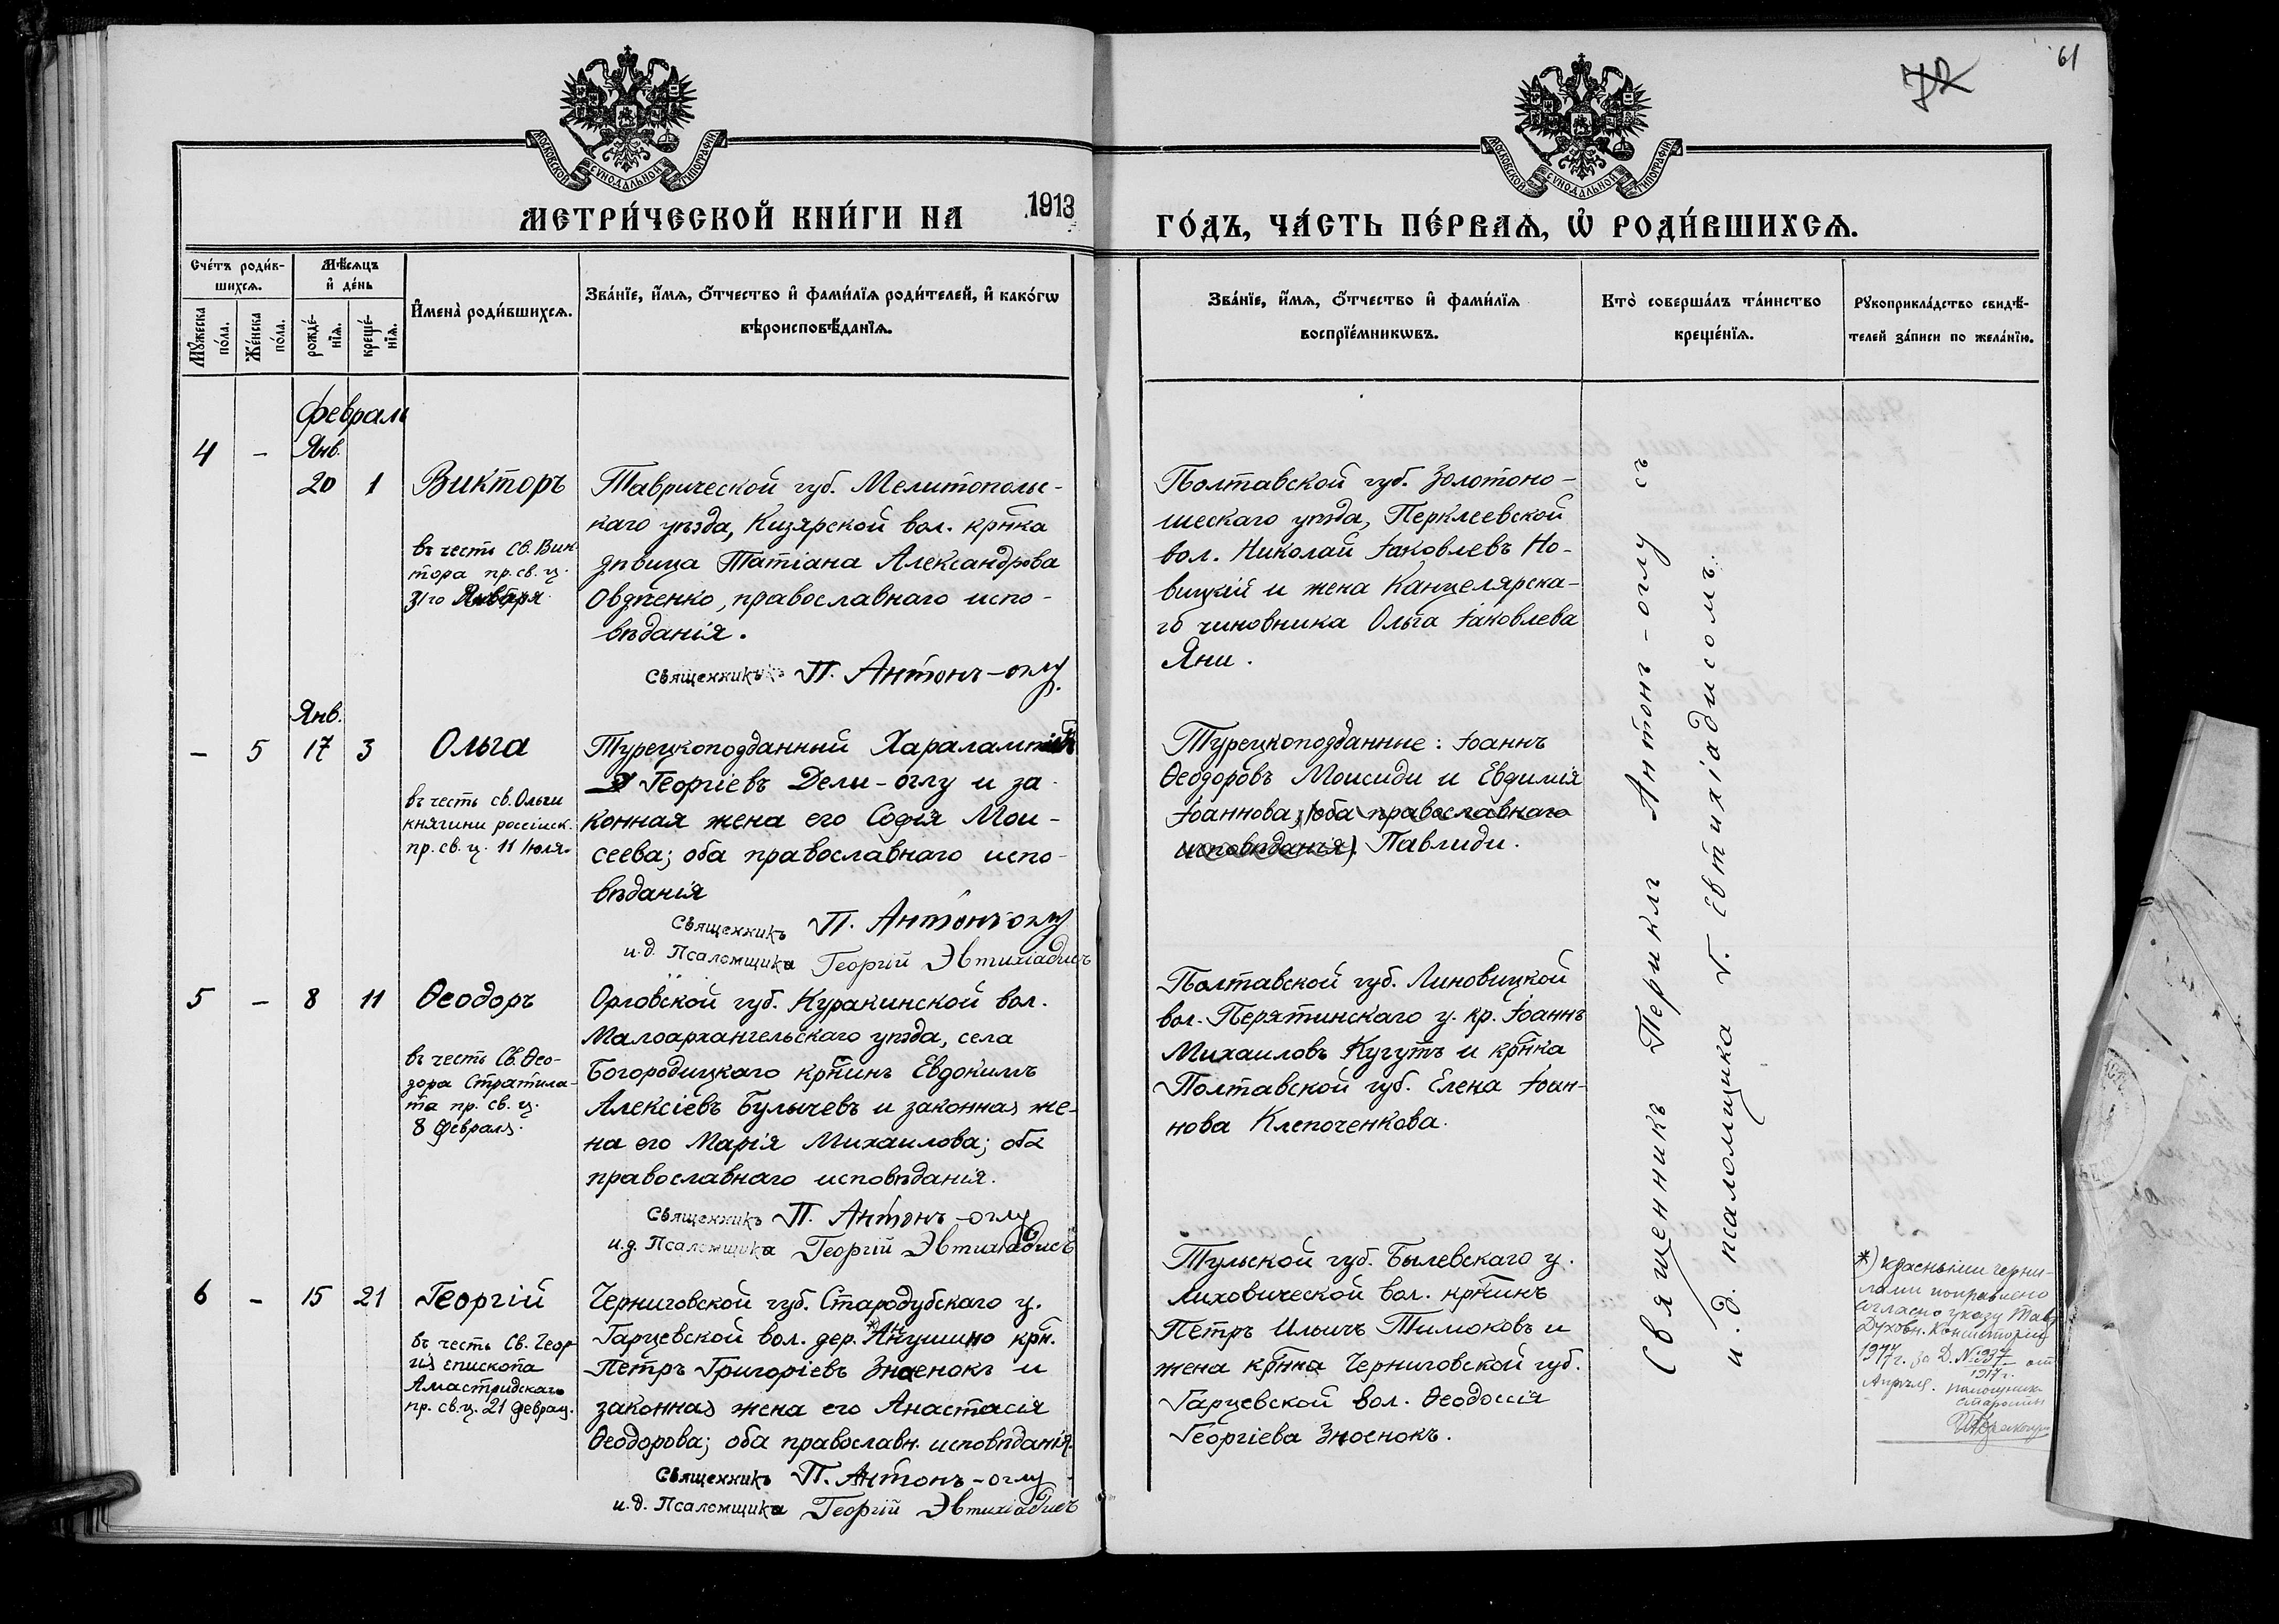 61
72
МОСКОВСКОЙ СѴНОДАЛЬНОЙ ТИПОГРАФІИ
МОСКОВСКОЙ СѴНОДАЛЬНОЙ ТИПОГРАФІИ
МЕТРИ́ЧЕСКОЙ КНИ́ГИ НА 1913
ГО́ДЪ, ЧА́СТЬ ПЕ́РВАѦ, Ѡ РОДИ́ВШИХСѦ.
Сче́тъ роди́в-
шихсѧ.
Мꙋ́жеска
по́ла.
Же́нска
по́ла.
Мѣ́сѧцъ
и҆ де́нь
рожде́-
нїѧ.
креще́-
нїѧ.
И҆мена̀ роди́вшихсѧ.
Зва́нїе, и҆́мѧ, ѻ҆́тчество и҆ фами́лїѧ роди́телей, и҆ како́гѡ
вѣроисповѣ́данїѧ.
Зва́нїе, и҆́мѧ, ѻ҆́тчество и҆ фами́лїѧ
воспрїе́мникѡвъ.
Кто̀ соверша́лъ та́инство
креще́нїѧ.
Рꙋкоприкла́дство свидѣ́-
телей за́писи по жела́нїю.
Февраль
4 - Янв.
20 1 Викторъ
въ честь Св. Вик-
тора пр. св. ц.
31го Января
Таврической губ. Мелитопольс-
каго уѣзда, Кизярской вол. кр-нка
дѣвица Татіана Александрова
Овдѣенко, православнаго испо-
вѣданія.
Священникъ П. Антонъ-оглу
Полтавской губ. Золотоно-
шескаго уѣзда, Перклеевской
вол. Николай Іаковлевъ Но-
вицкій и жена Канцелярска-
го чиновника Ольга Іаковлева
Яни.
Янв.
- 5 17 3 Ольга
въ честь св. Ольги
княгини россійск.
пр. св. ц. 11 Іюля.
Турецкоподданный Харалампій
Георгіевъ Дели-оглу и за-
конная жена его Софія Мои-
сеева; оба православнаго испо-
вѣданія
Священникъ П. Антонъ оглу
и.д. Псаломщика Георгій Эвтихіадисъ
Турецкоподданные: Іоаннъ
Ѳеодоровъ Моисиди и Евфимія
Іоаннова; (оба православнаго
исповѣданія). Павлиди.
5 - 8 11 Ѳеодоръ
въ честь Св. Ѳео-
дора Стратила-
та пр. св. ц.
8 Февраля.
Орловской губ. Куракинской вол.
Малоархангельскаго уѣзда, села
Богородицкаго кр-нинъ Евдокимъ
Алексіевъ Булычевъ и законная же-
на его Марія Михаилова; оба
православнаго исповѣданія.
Священникъ П. Антонъ-оглу
и.д. Псаломщика Георгій Эвтихіадисъ
Полтавской губ. Линовицкой
вол. Перятинскаго у. кр. Іоаннъ
Михаиловъ Кугутъ и кр-нка
Полтавской губ. Елена Іоан-
нова Клепоченкова.
6 - 15 21 Георгій
въ честь Св. Геор-
гія епископа
Амастридскаго
пр. св. ц. 21 Феврал.
Черниговской губ. Стародубскаго у.
Гарцевской вол. дер. *) Анушино крн.
Петръ Григоріевъ Зноенокъ и
законная жена его Анастасія
Ѳеодорова; оба православн. исповѣданія.
Священникъ П. Антонъ-оглу
и.д. Псаломщика Георгій Эвтихіадисъ
Тульской губ. Былевскаго у.
Лиховической вол. кр-нинъ
Петръ Ильичъ Тимоковъ и
жена кр-нина Черниговской губ.
Гарцевской вол. Ѳеодосія
Георгіева Зноенокъ.
Священникъ Периклъ Антонъ-оглу съ
и.д. псаломщика Г. Евтихіадисомъ.
*) красными черни-
лами поправлено
согласно указу Тавр.
Духовн. Консисторіи
1917 г. за Д. № 937 от
1917 г.
Апрѣля.